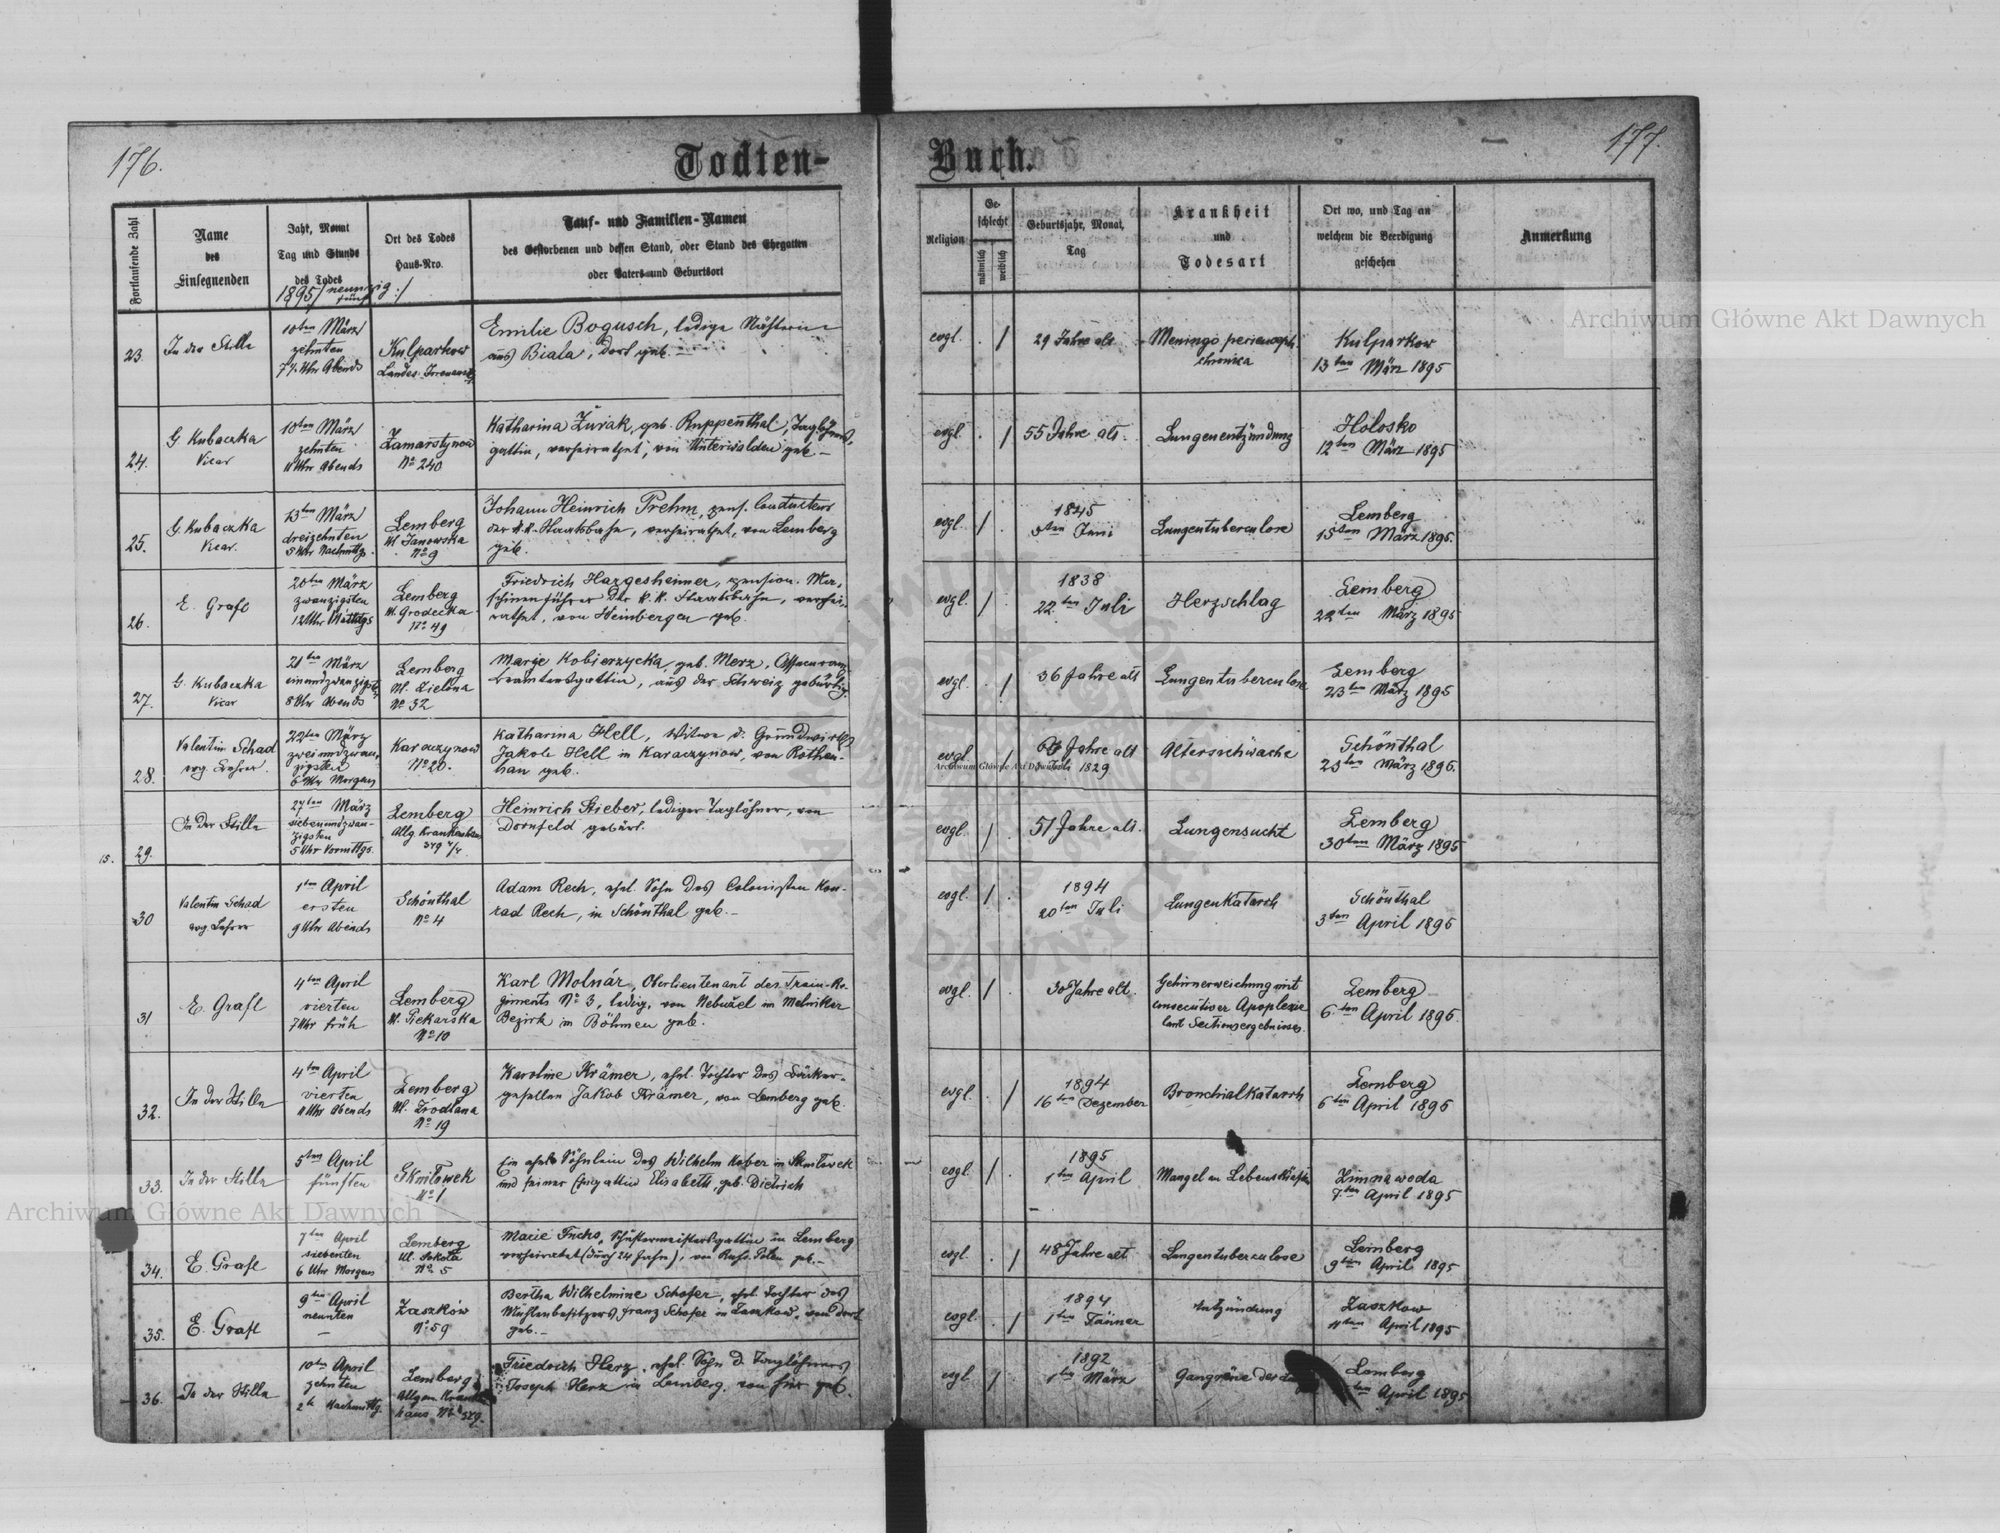 176.
Todten-
Buch.
177.
Fortlaufende Zahl
Name
des
Einsegnenden
Jahr, Monat
Tag und Stunde
des Todes
1895/neunzig
fünf/
Ort des Todes
Haus-Nro.
Tauf- und Familien-Namen
des Gestorbenen und dessen Stand, oder Stand des Ehegatten
oder Vaters und Geburtsort
Religion
Ge-
schlecht
männlich
weiblich
Geburtsjahr, Monat,
Tag
Krankheit
und
Todesart
Ort wo, und Tag an
welchem die Beerdigung
geschehen
Anmerkung
23.
In der Stille
10ten März
zehnten
7½ Uhr Abends
Kulparkow
Landes-Irrenanst.
Emilie Bogusch, ledige Nähterin
aus Biala, dort geb.
evgl.
/
29 Jahre alt
Meningo perienceph.
chronica
Kulparkow
13ten März 1895
24.
G. Kubaczka
Vicar
10ten März
zehnten
11 Uhr Abends
Zamarstynow
No 240
Katharina Żurak, geb. Ruppenthal, Taglöhners-
gattin, verheirathet, von Unterwalden geb.
evgl.
/
55 Jahre alt.
Lungenentzündung
Holosko
12ten März 1895
25.
G. Kubaczka
Vicar.
13ten März
dreizehnten
5 Uhr Nachmttgs.
Lemberg
Ul. Janowska
No 9
Johann Heinrich Prehm, pens. Conducteur
der k.k. Staatsbahn, verheirathet, von Lemberg
geb.
evgl.
/
1845
9ten Juni
Lungentuberculose
Lemberg
15ten März 1895.
26.
E. Grafl
20ten März
zwanzigsten
12 Uhr Mittgs
Lemberg
Ul. Grodecka
No 49
Friedrich Hargesheimer, pension. Ma-
schinenführer der k.k. Staatsbahn, verhei-
rathet, von Heinbergen geb.
evgl.
/
1838
22ten Juli
Herzschlag
Lemberg
22ten März 1895
27.
G. Kubaczka
Vicar
21ten März
einundzwanzigst.
8 Uhr Abends
Lemberg
Ul. Zielona
No 32
Marie Kobierzycka, geb. Merz, Assecuranz-
beamtensgattin, aus der Schweiz gebürtig.
evgl.
/
36 Jahre alt
Lungentuberculose
Lemberg
23ten März 1895
28.
Valentin Schad
evg. Lehrer
22ten März
zweiundzwan-
zigsten
6 Uhr Morgens
Karaczynow
No 20.
Katharina Hell, Witwe d. Grundwirths
Jakob Hell in Karaczynow, von Rothen-
han geb.
evgl.
/
66 Jahre alt
1829
Altersschwäche
Schönthal
25ten März 1895.
29.
In der Stille
27ten März
siebenundzwan-
zigsten
5 Uhr Vormttgs.
Lemberg
Allg. Krankenhaus
379 4/4
Heinrich Stieber, lediger Taglöhner, von
Dornfeld gebürt.
evgl.
/
51 Jahre alt.
Lungensucht
Lemberg
30ten März 1895
15.
30
Valentin Schad
evg. Lehrer
1ten April
ersten
9 Uhr Abends
Schönthal
No 4
Adam Rech, ehel. Sohn des Colonisten Kon-
rad Rech, in Schönthal geb.
evgl.
/
1894
20ten Juli
Lungenkatarrh
Schönthal
3ten April 1895
31
E. Grafl
4ten April
vierten
7 Uhr früh
Lemberg
Ul. Piekarska
No 10
Karl Molnár, Oberlieutenant des Train-Re-
giments No 3, ledig, von Nebužel im Melniker
Bezirk in Böhmen geb.
evgl.
/
30 Jahre alt
Gehirnerweichung mit
consecutiver Apoplexie
laut Sectionsergebnisses.
Lemberg
6ten April 1895.
32.
In der Stille
4ten April
vierten
11 Uhr Abends
Lemberg
Ul. Źrodlana
No 19
Karoline Krämer, ehel. Tochter des Bäcker-
gesellen Jakob Krämer, von Lemberg geb.
evgl.
/
1894
16ten Dezember
Bronchialkatarrh
Lemberg
6ten April 1895
33.
In der Stille
5ten April
fünften
Sknilowek
No 1
Ein ehel. Söhnlein des Wilhelm Kober in Sknilowek
und seiner Ehegattin Elisabeth, geb. Dietrich
evgl.
/
1895
1ten April
Mangel an Lebenskräften
Zimnawoda
7ten April 1895
34.
E. Grafl
7ten April
siebenten
6 Uhr Morgens
Lemberg
Ul. Sokola
No 5
Marie Fuchs, Schustermeistersgattin in Lemberg
verheiratet (durch 24 Jahre), von Russ. Polen geb.
evgl.
/
48 Jahre alt
Lungentuberculose
Lemberg
9ten April 1895
35.
E. Grafl
9ten April
neunten
Zaszków
No 59
Bertha Wilhelmine Schofer, ehel. Tochter des
Mühlenbesitzers Franz Schofer in Zaszkow, von dort
geb.
evgl.
/
1894
1ten Jänner
Entzündung
Zaszkow
11ten April 1895
36.
In der Stille
10ten April
zehnten
2h Nachmttg.
Lemberg
Allgem. Kranken-
haus No 379.
Friedrich Herz, ehel. Sohn d. Taglöhners
Joseph Herz in Lemberg, von hier geb.
evgl.
/
1892
1ten März
Gangräne der
Lemberg
ten April 1895
Archiwum Główne Akt Dawnych
Archiwum Główne Akt Dawnych
Archiwum Główne Akt Dawnych